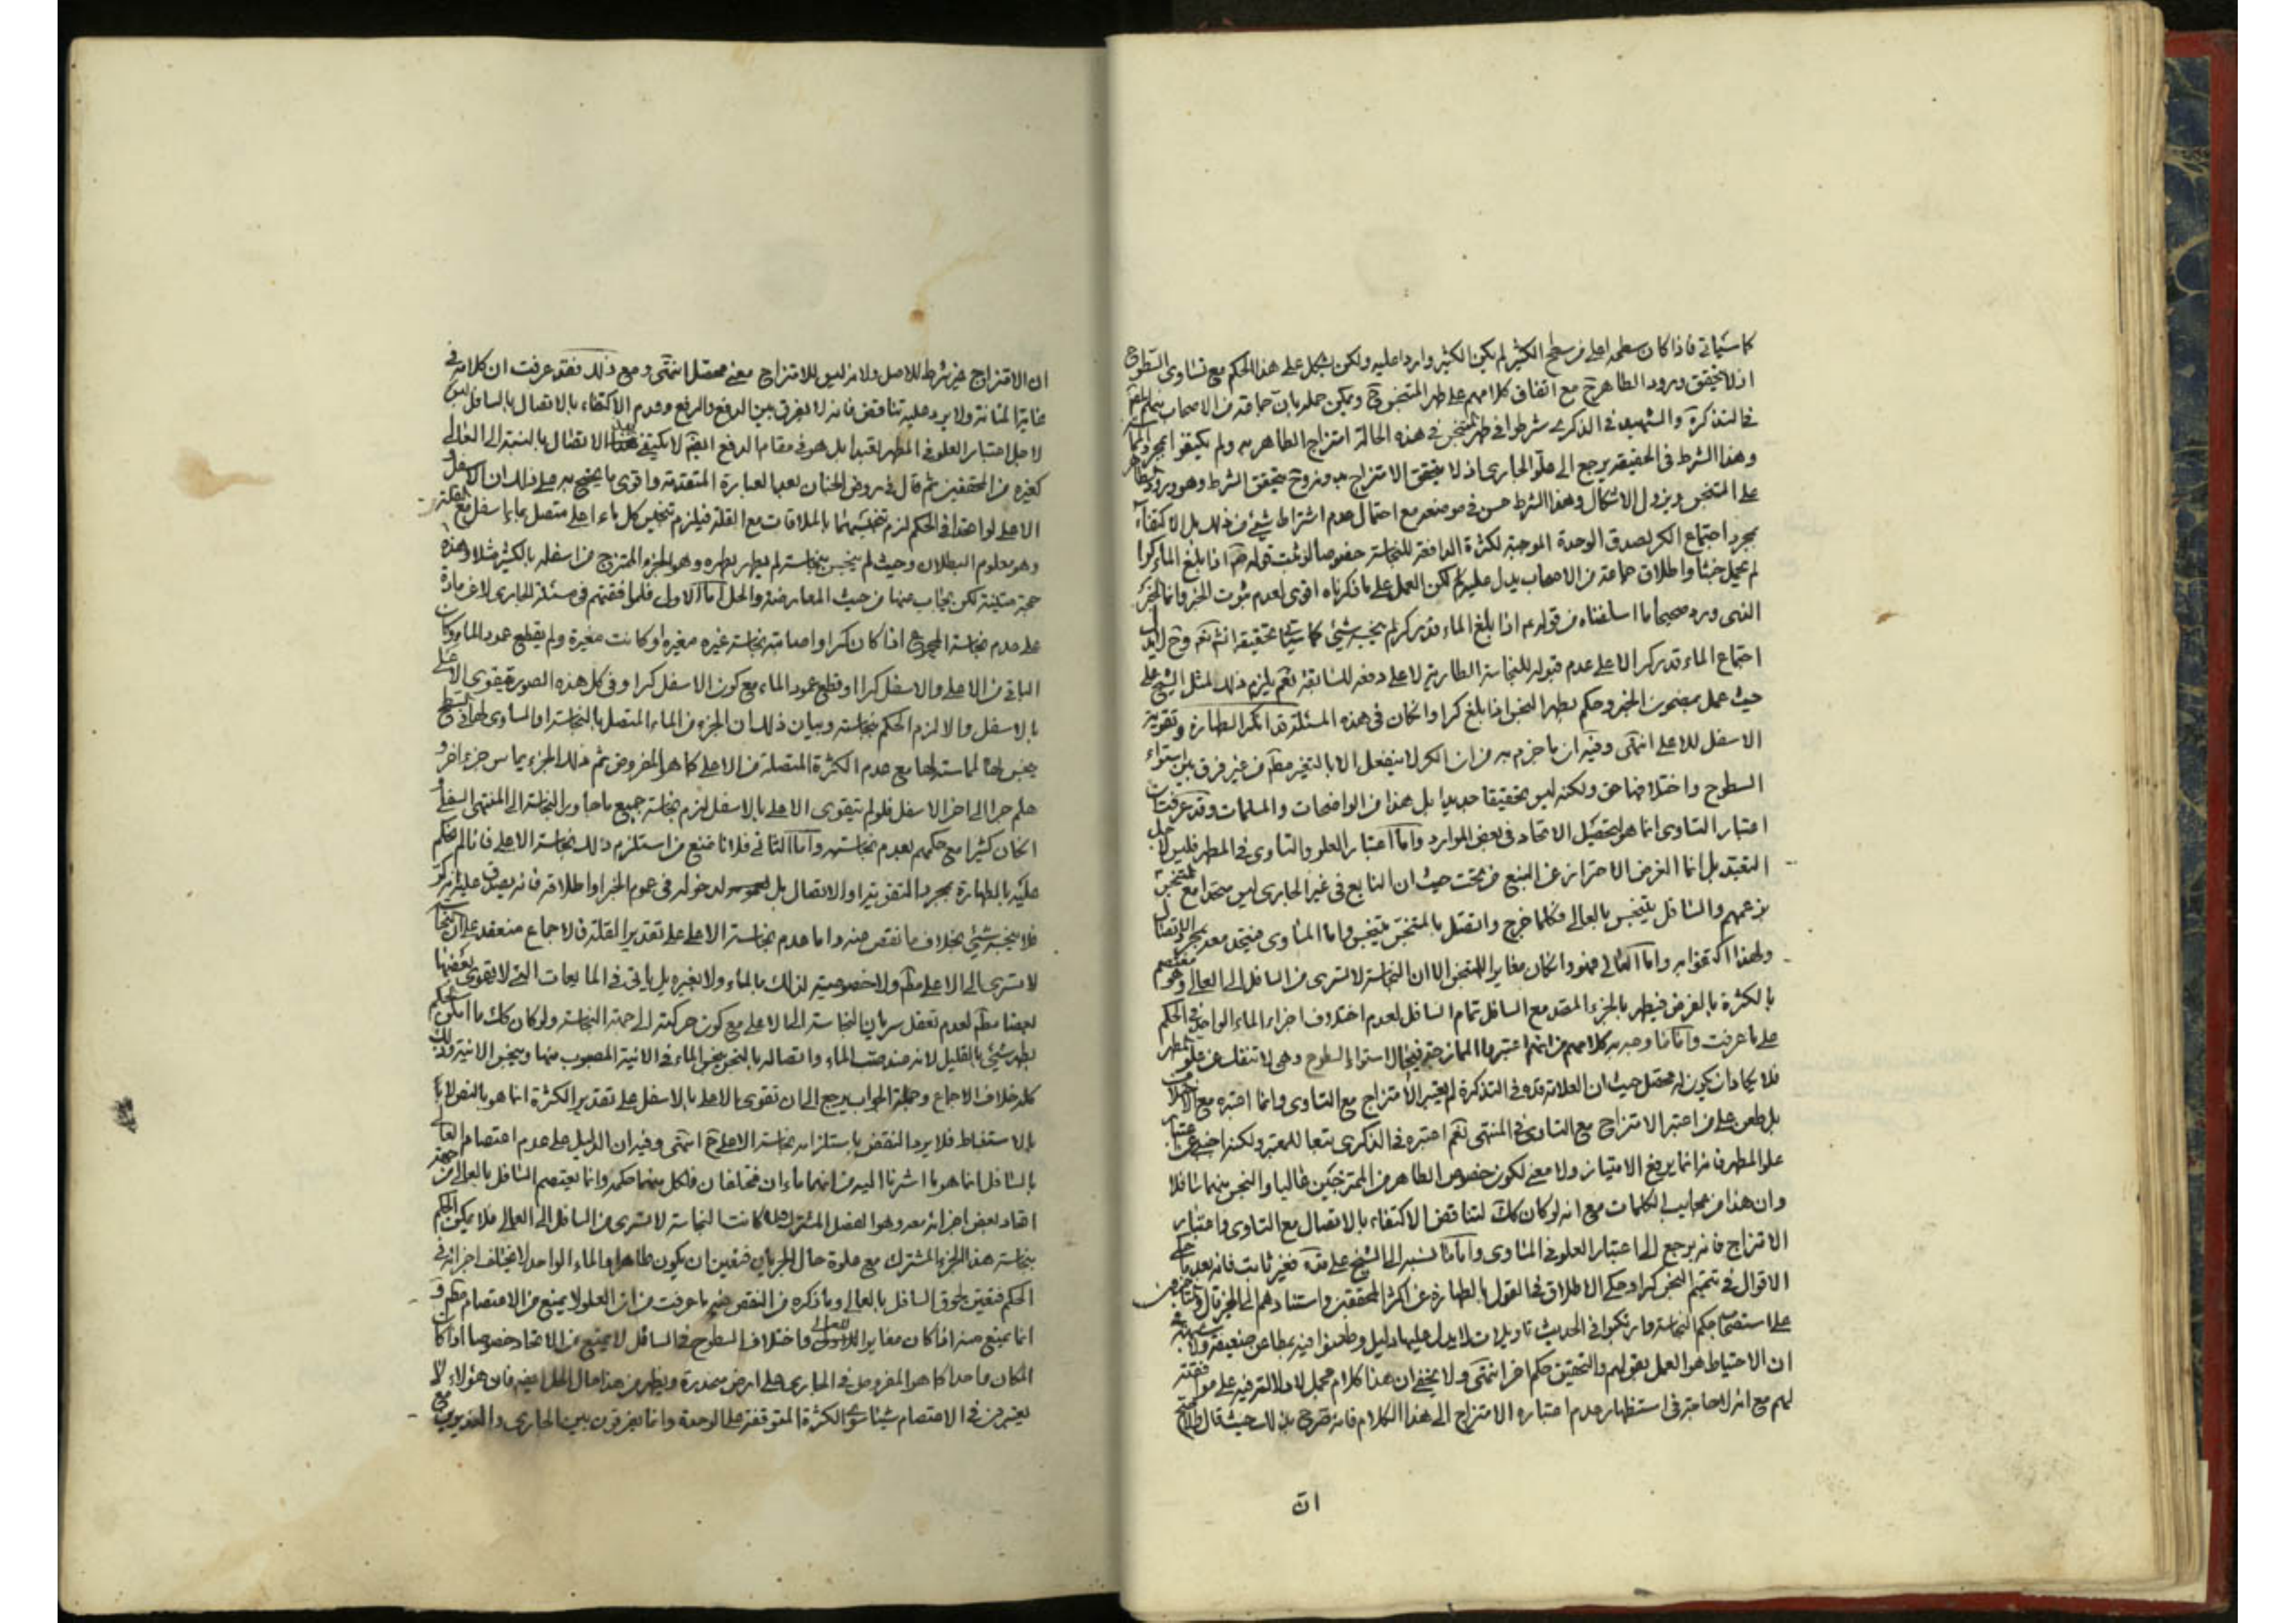 كما سيأتي فاذا كان سطحه اعلى من سطح الكثير لم يكن الكثير واردا عليه ولكن يشكل على هذا الحكم مع تساوى السطوح
اذ لا يتحقق ورود الطاهر ح مع اتفاق كلامهم على طهر المتنجس ح ويمكن حمله بان جماعة من الاصحاب منهم
في التذكرة والشهيد في الذكرى شرطوا في طهر المتنجس في هذه الحالة امتزاج الطاهر به ولم يكتفوا بمجرد
وهذا الشرط في الحقيقة يرجع الى علو الجارى اذ لا يتحقق الامتزاج بدونه وح يتحقق الشرط وهو ورود
على المتنجس ويزول الاشكال وهذا الشرط حسن في موضعه مع احتمال عدم اشتراط شيء من ذلك بل الاكتفاء
بمجرد اجتماع الكر لصدق الوحدة الموجبة لكثرة الدافعة للنجاسة خصوصا لو ثبت قوله اذا بلغ الماء كرا
لم يحمل خبثا واطلاق جماعة من الاصحاب يدل عليه لكن العمل على ما ذكرناه اقوى لعدم ثبوت الخبر وانما الخبر
الذى ورد صحيحا ما اسلفناه من قوله ع اذا بلغ الماء قدر كر لم ينجسه شيء كما سيأتي تحقيقه انشاء الله تعه وح
اجتماع الماء قدر كر الا على عدم قبوله للنجاسة الطارية لا على دفعه للسابقة نعم يلزم ذلك لمثل الشيخ على
حيث عمل بمضمون الخبر وحكم بطهر النجس اذا بلغ كرا وان كان في هذه المسئلة قد انكر الطهارة وتقوية
الاسفل للاعلى انتهى وفيه ان ما جزم به من ان الكر لا ينفعل الا بالتغير مطم من غير فرق بين استواء
السطوح واختلافها حق ولكنه ليس تحقيقا جديدا بل هذا من الواضحات والمسلمات وقد عرفت ان
اعتبار التساوى انما هو لتحصيل الاتحاد في بعض الموارد واما اعتبار العلو والتساوى في المطهر فليس لاجل
التعبد بل انما الغرض الاحتراز عن النبع من تحت حيث ان النابع في غير الجارى ليس متحدا مع المتنجس
بزعمهم والسافل يتنجس بالعالي فكلما خرج واتصل بالمتنجس يتنجس واما المساوى فيتحد معه بمجرد الاتصال
ولهذا اكتفوا به واما العالي فهو وان كان مغايرا للمتنجس الا ان النجاسة لا تسرى من السافل الى العالي وهو معتصم
بالكثرة بالفرض فيطهر بالجزء المتحد مع السافل تمام السافل لعدم اختلاف اجزاء الماء الواحد في الحكم
على ما عرفت واما ما وجه به كلامهم من انهم اعتبروا الممازجة في حال استواء السطوح وهى لا تنفك عن علو المطهر
فلا يكاد ان يكون له محصل حيث ان العلامة قده في التذكرة لم يعتبر الامتزاج مع التساوى وانما اعتبره مع الاختلاف
بل طعن على من اعتبر الامتزاج مع التساوى في المنتهى نعم اعتبره في الذكرى تبعا للمعتبر ولكنه اجنبي عن اعتبار
علو المطهر فانه انما يرفع الامتياز ولا معنى لكون خصوص الطاهر من الممتزجين غالبا والنجس منهما سافلا
وان هذا من عجايب الكلمات مع انه لو كان كك لتناقض الاكتفاء بالاتصال مع التساوى واعتبار
الامتزاج فانه يرجع الى اعتبار العلو في المساوى واما ما نسبه الى الشيخ على قده فغير ثابت فانه بعد ما حكى
الاقوال في تتميم النجس كرا وحكى الاطلاق في القول بالطهارة عن اكثر المحققين واستنادهم الى الخبر قال
على استصحاب حكم النجاسة وارتكبوا في الحديث تاويلات لا يدل عليها دليل وطعنوا فيه بمطاعن ضعيفة ولا شبهة
ان الاحتياط هو العمل بقولهم والتحقيق حكم اخر انتهى ولا يخفى ان هذا كلام مجمل لا دلالة فيه على موافقته
لهم مع انه لا حاجة في استظهار عدم اعتباره الامتزاج الى هذا الكلام فانه صرح بذلك حيث قال
ان
ان الامتزاج غير شرط للاصل ولانه ليس للامتزاج معنى محصل انتهى ومع ذلك فقد عرفت ان كلامه في
غاية المتانة ولا يرد عليه تناقض فانه لا يفرق بين الدفع والرفع وعدم الاكتفاء بالاتصال بالسافل ليس
لاجل اعتبار العلو في المطهر تعبدا بل هو في مقام الدفع ايضم لا يكتفي بهذا الاتصال بالنسبة الى العالي
كغيره من المحققين ثم قال في روض الجنان بعد العبارة المتقدمة واقوى ما يحتج به على ذلك ان الاسفل و
الاعلى لو اتحدا في الحكم لزم تنجيسهما بالملاقات مع القلة فيلزم تنجيس كل ماء اعلى متصل بماء اسفل مع القلة
وهو معلوم البطلان وحيث لم ينجس بنجاسته لم يطهر بطهره وهو الجزء الممتزج من اسفله بالكثير مثلا وهذه
حجة متينة لكن يجاب عنها من حيث المعارضة والحل اما الاول فلموافقتهم في مسئلة الجارى لا عن مادة
على عدم نجاسة المجموع اذا كان كرا واصابته نجاسة غيره مغيرة او كانت مغيرة ولم يقطع عمود الماء وكان
الباقي من الاعلى والاسفل كرا او قطع عمود الماء مع كون الاسفل كرا وفي كل هذه الصورة يتقوى الاعلى
بالاسفل والا لزم الحكم بنجاسته وبيان ذلك ان الجزء من الماء المتصل بالنجاسة او المساوى لها في السطح
ينجس بها لمماسته لها مع عدم الكثرة المتصلة من الاعلى كما هو المفروض ثم ذلك الجزء يماس جزء اخر و
هلم جرا الى اخر الاسفل فلو لم يتقوى الاعلى بالاسفل لزم نجاسة جميع ما جاور النجاسة الى المنتهى السفلى
ان كان كثيرا مع حكمهم بعدم نجاسته واما الثاني فلانا نمنع من استلزام ذلك نجاسة الاعلى فانا لم نحكم
عليه بالطهارة بمجرد التقوية او الاتصال بل لدخوله في عموم الخبر او اطلاقه فانه يصدق عليه انه كر
فلا ينجسه شيء بخلاف ما نقص عنه واما عدم نجاسة الاعلى على تقدير القلة فللاجماع منعقد على ان النجاسة
لا تسرى الى الاعلى مطم ولا خصوصية لذلك بالماء ولا بغيره بل يأتي في المايعات التي لا يتقوى بعضها
ببعض مطم لعدم تعقل سريان النجاسة الى الاعلى مع كون حركته الى جهة النجاسة ولو كان كك ما امكن الحكم
بطهر شيء بالقليل لانه عند صب الماء واتصاله بالنجس ينجس الماء في الانية المصبوب منها وينجس الانية وذلك
كله خلاف الاجماع وجملة الجواب يرجع الى ان تقوى الاعلى بالاسفل على تقدير الكثرة انما هو بالنص لا
بالاستنباط فلا يرد النقض باستلزامه نجاسة الاعلى ح انتهى وفيه ان الدليل على عدم اعتصام العالي
بالسافل انما هو ما اشرنا اليه من انهما ماءان مختلفان فلكل منهما حكمه وانما يعتصم السافل بالعالي من جهة
اتحاد بعض اجزائه معه وهو الفصل المشترك ولما كانت النجاسة لا تسرى من السافل الى العالي فلا يمكن الحكم
بنجاسة هذا الجزء المشترك مع علوه حال الجريان فتعين ان يكون طاهرا والماء الواحد لا يختلف اجزائه في
الحكم فتعين لحوق السافل بالعالي وما ذكره من النقض فيه ما عرفت من ان العلو لا يمنع من الاعتصام مطم و
انما يمنع منه اذا كان مغايرا للعالي واختلاف السطوح في السافل لا يمنع من الاتحاد خصوصا اذا كان
المكان واحدا كما هو المفروض في الجارى على ارض منحدرة ويظهر من هذا حال الحل ايضم فان هؤلاء لا
يعتبرون في الاعتصام شيئا سوى الكثرة المتوقفة على الوحدة وانما يفرقون بين الجارى والغديرين مع